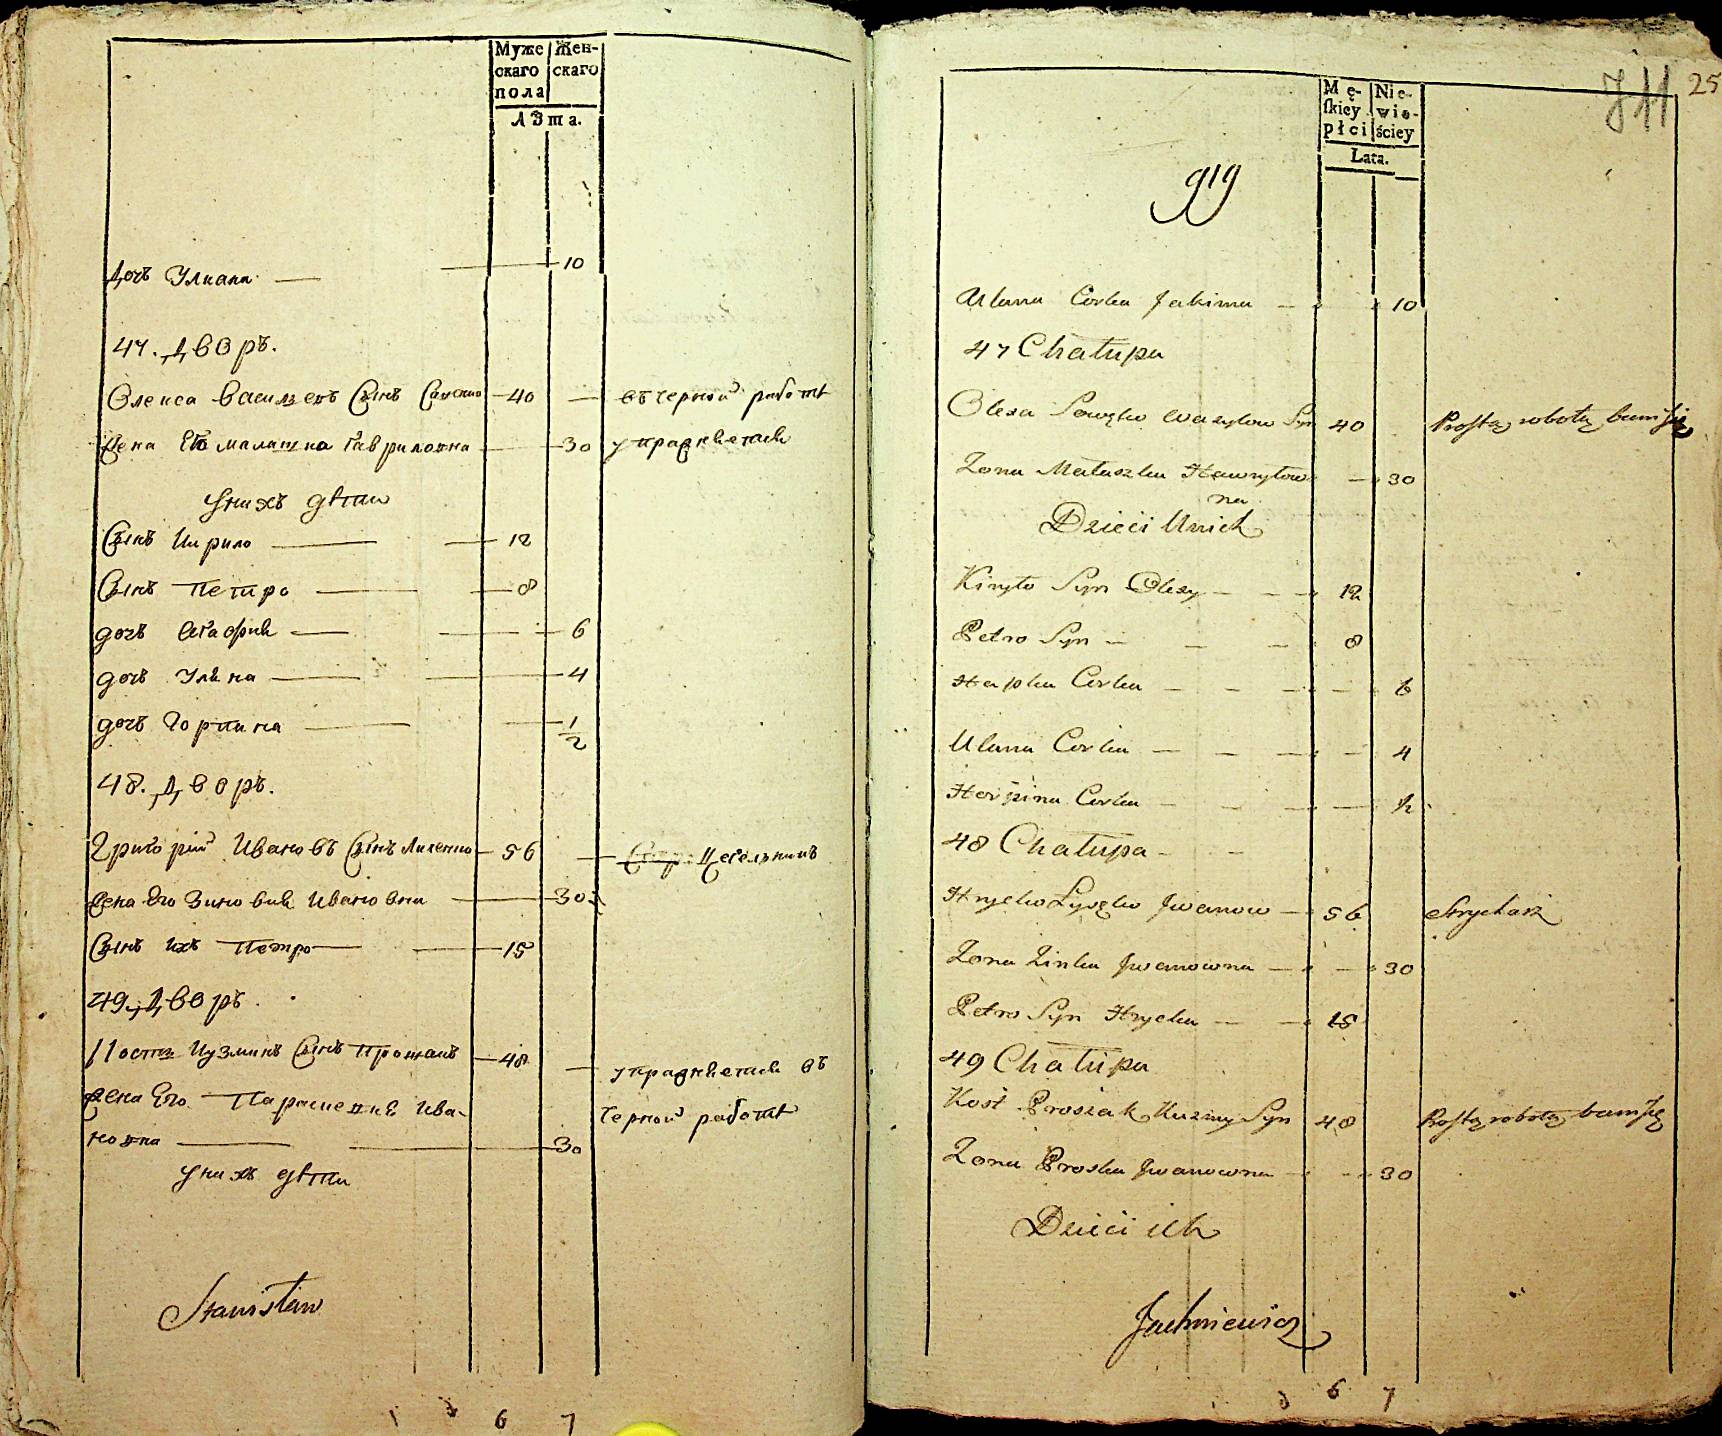 Муже
скаго
пола
Жен-
скаго
ЛѢта.
Дочъ Улиана — 10
47. Дворъ.
Олекса Васильевъ Сынъ Савенко 40 въ черной работѣ
Жена Его Малашка Гавриловна 30 упражняетъся
У нихъ дѣти
Сынъ Кирило — 12
Сынъ Петро — 8
дочъ Агафия — 6
дочъ Уляна — 4
дочъ Горпина — 1/2
48. Дворъ.
Григорій Ивановъ Сынъ Лисенко 56 Цегельникъ
Жена Его Зиновия Ивановна 30
Сынъ ихъ Петро — 15
49. Дворъ.
Костъ Кузминъ Сынъ 48 упражняетъся въ
Жена Его Парасцевия Ива- черной работѣ
новна — 30
У нихъ дѣти
Stanisław
6 7
Mę-
skiey
płci
Nie-
wie-
ściey
Lata.
25
Ulana Corka Jakima — 10
47 Chałupa
Olexa Sawęko Wasylow Syn 40 Prostą robotą bawi się
Zona Małaszka Hawryłow 30
na
Dzieci Unich
Kiryło Syn Olexy — 12
Petro Syn — 8
Hapka Corka — 6
Ulana Corka — 4
Horpina Corka — 1/2
48 Chałupa
Hryćko Łysęko Jwanow — 56 Strycharz
Zona Zinka Jwanowna — 30
Petro Syn Hryćka — 15
49 Chałupa
Kost Prozak Kuzmy Syn 48 Prostą robotą bawi się
Zona Proska Jwanowna — 30
Dzieci ich
Jachniewicz
6 7